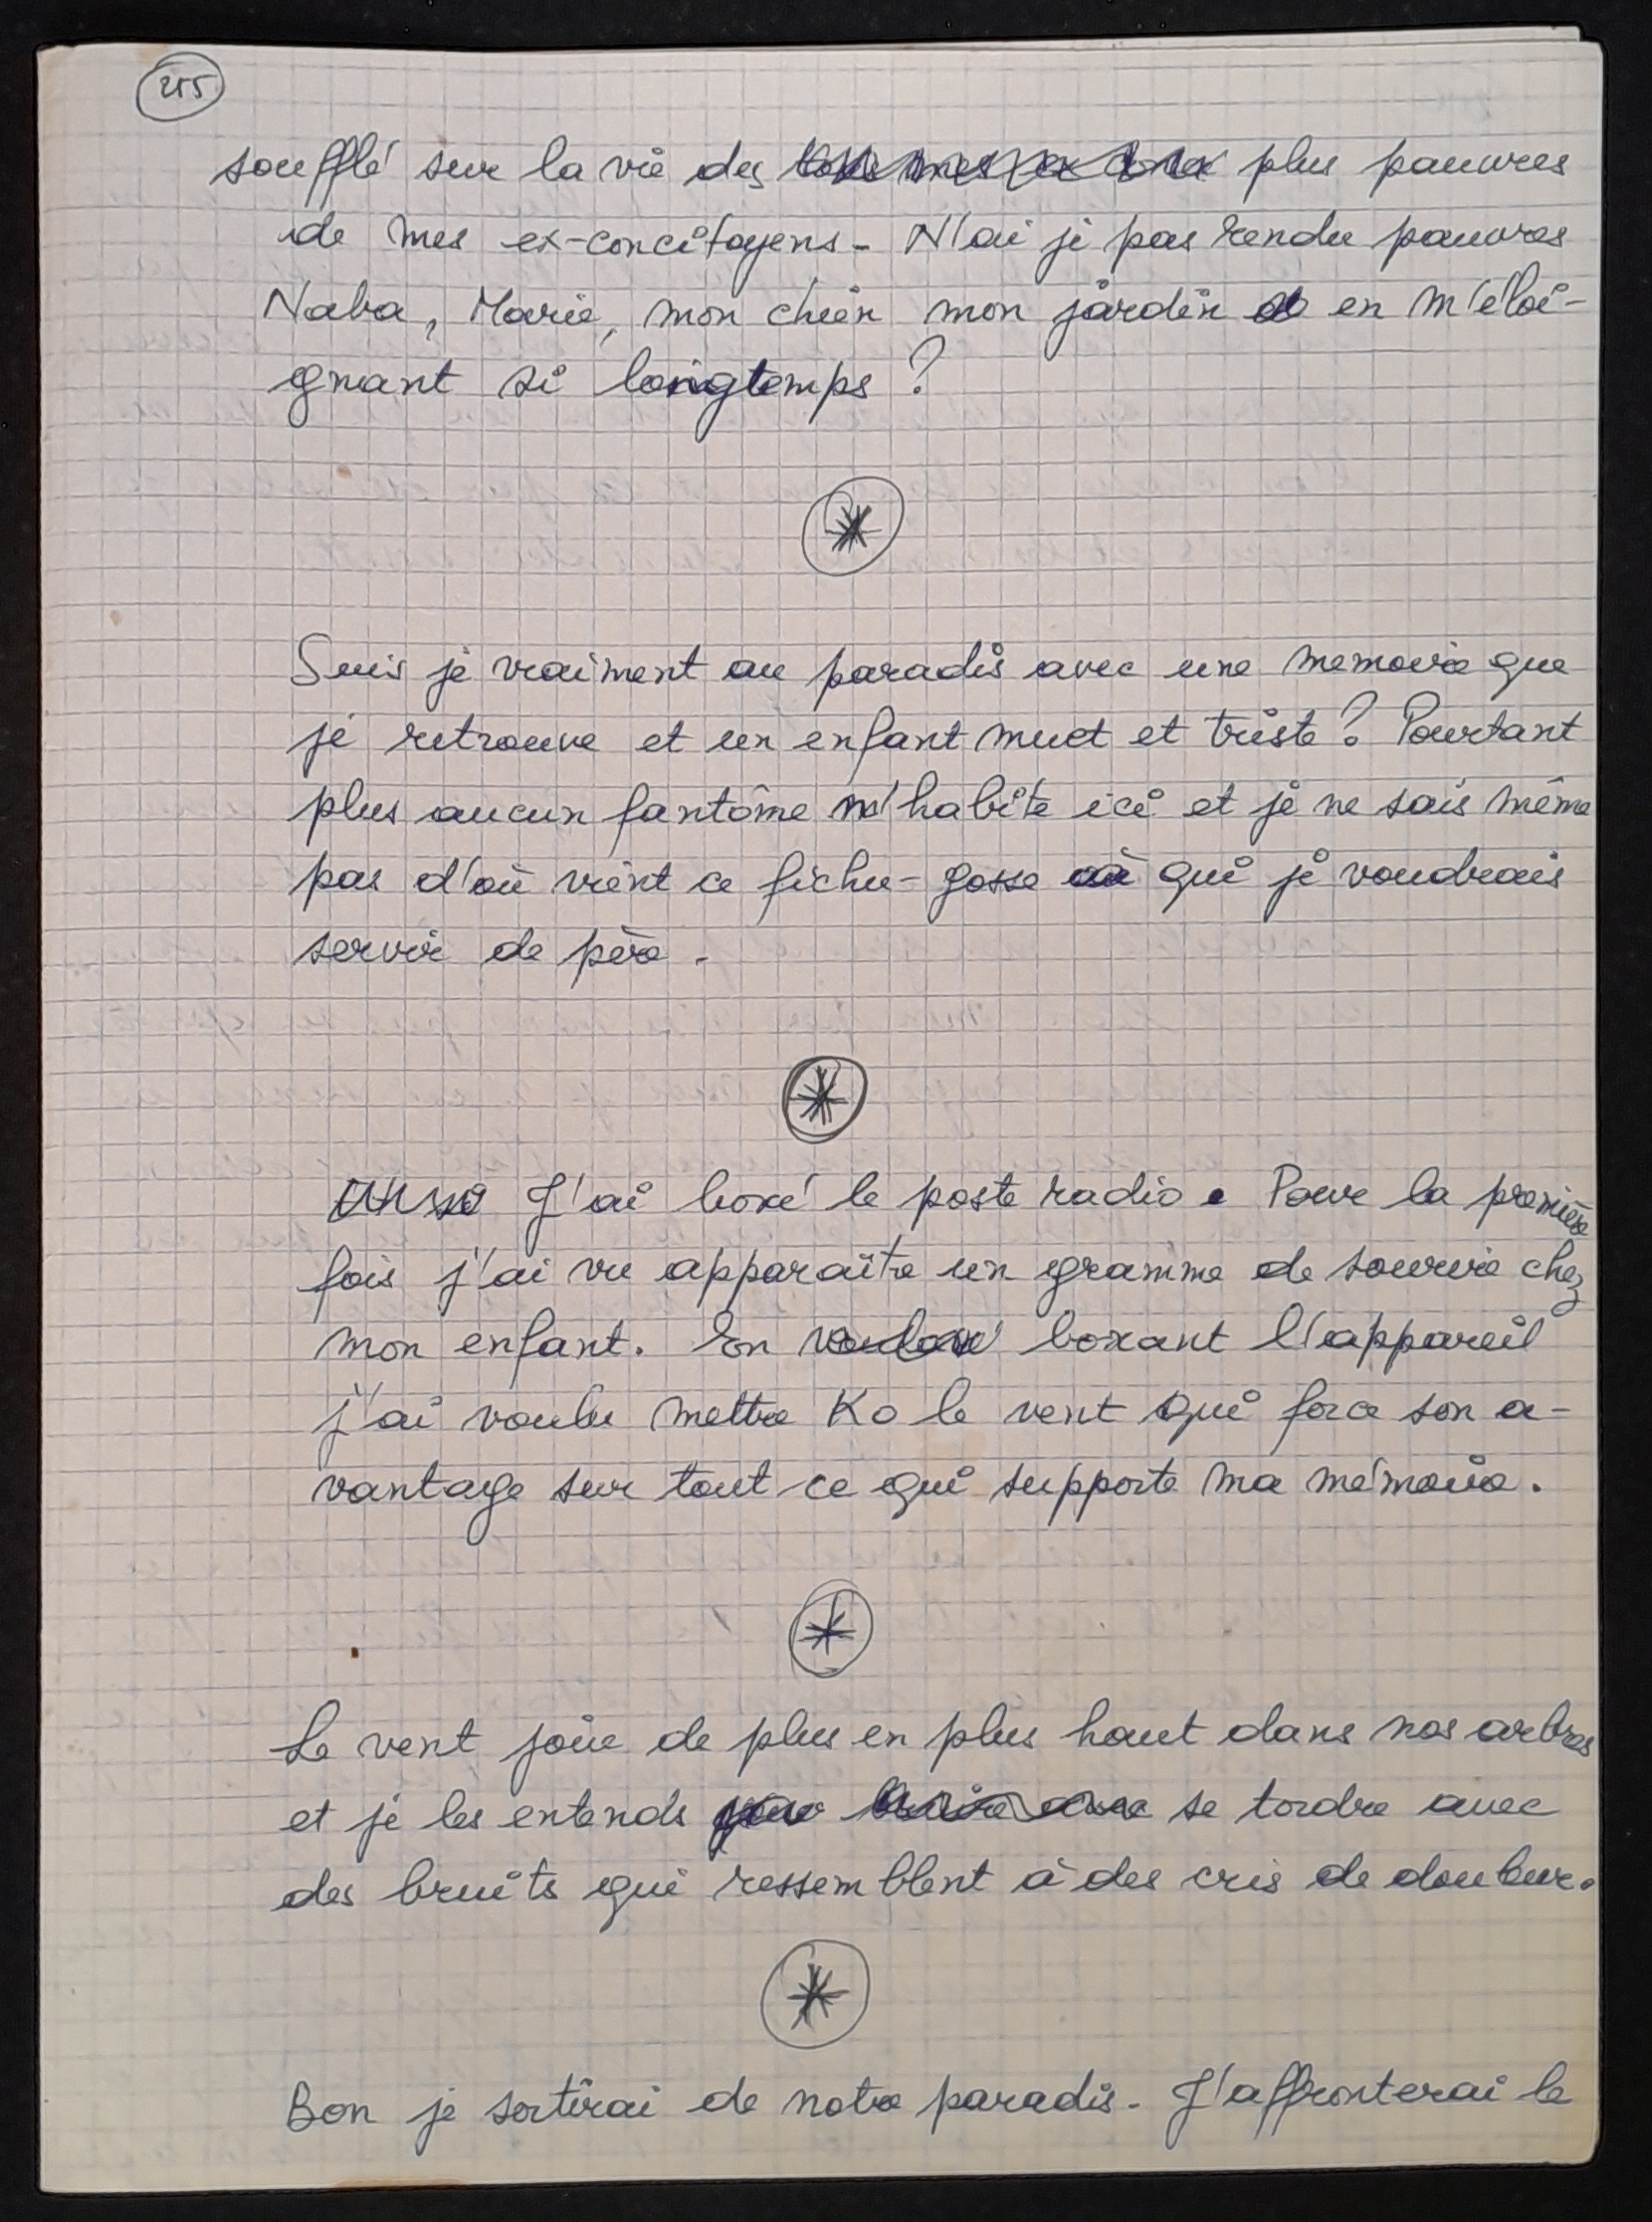 255
soufflé sur la vie des plus pauvres
de mes ex-concitoyens - N'ai je pas rendu pauvres
Naba, Marie, mon chien mon jardin en m'éloi-
gnant si longtemps ?
*
Suis je vraiment au paradis avec une memoire que
je retrouve et un enfant muet et triste ? Pourtant
plus aucun fantôme m'habite ici et je ne sais même
pas d'où vient ce fichu-gosse à qui je voudrais
servir de père.
*
J'ai boxé le poste radio. Pour la première
fois j'ai vu apparaître un gramme de sourire chez
mon enfant. En boxant l'appareil
j'ai voulu mettre Ko le vent qui force son a-
vantage sur tout ce qui supporte ma mémoire.
*
Le vent joue de plus en plus haut dans nos arbres
et je les entends se tordre avec
des bruits qui ressemblent à des cris de douleur.
*
Bon je sortirai de notre paradis - J'affronterai le